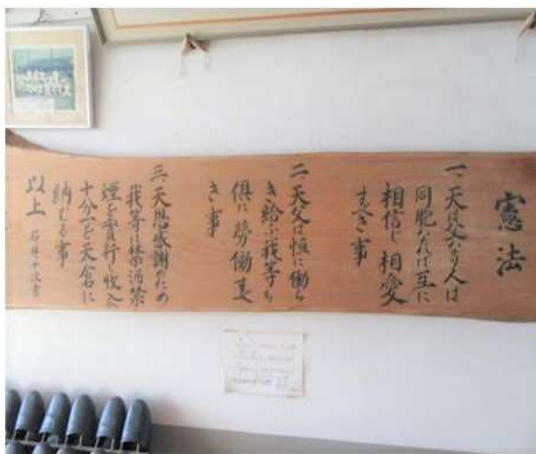 憲法
一、天は父なり人は
同胞なれば互に
相信じ相愛
すべき事
二、天父は恒に働ら
き給ふ我等も
俱に勞働すべ
き事
三、天恩感謝のため
我等は禁酒禁
煙を實行し收入の
十分一を天倉に
納むる事
以上 石井十次書